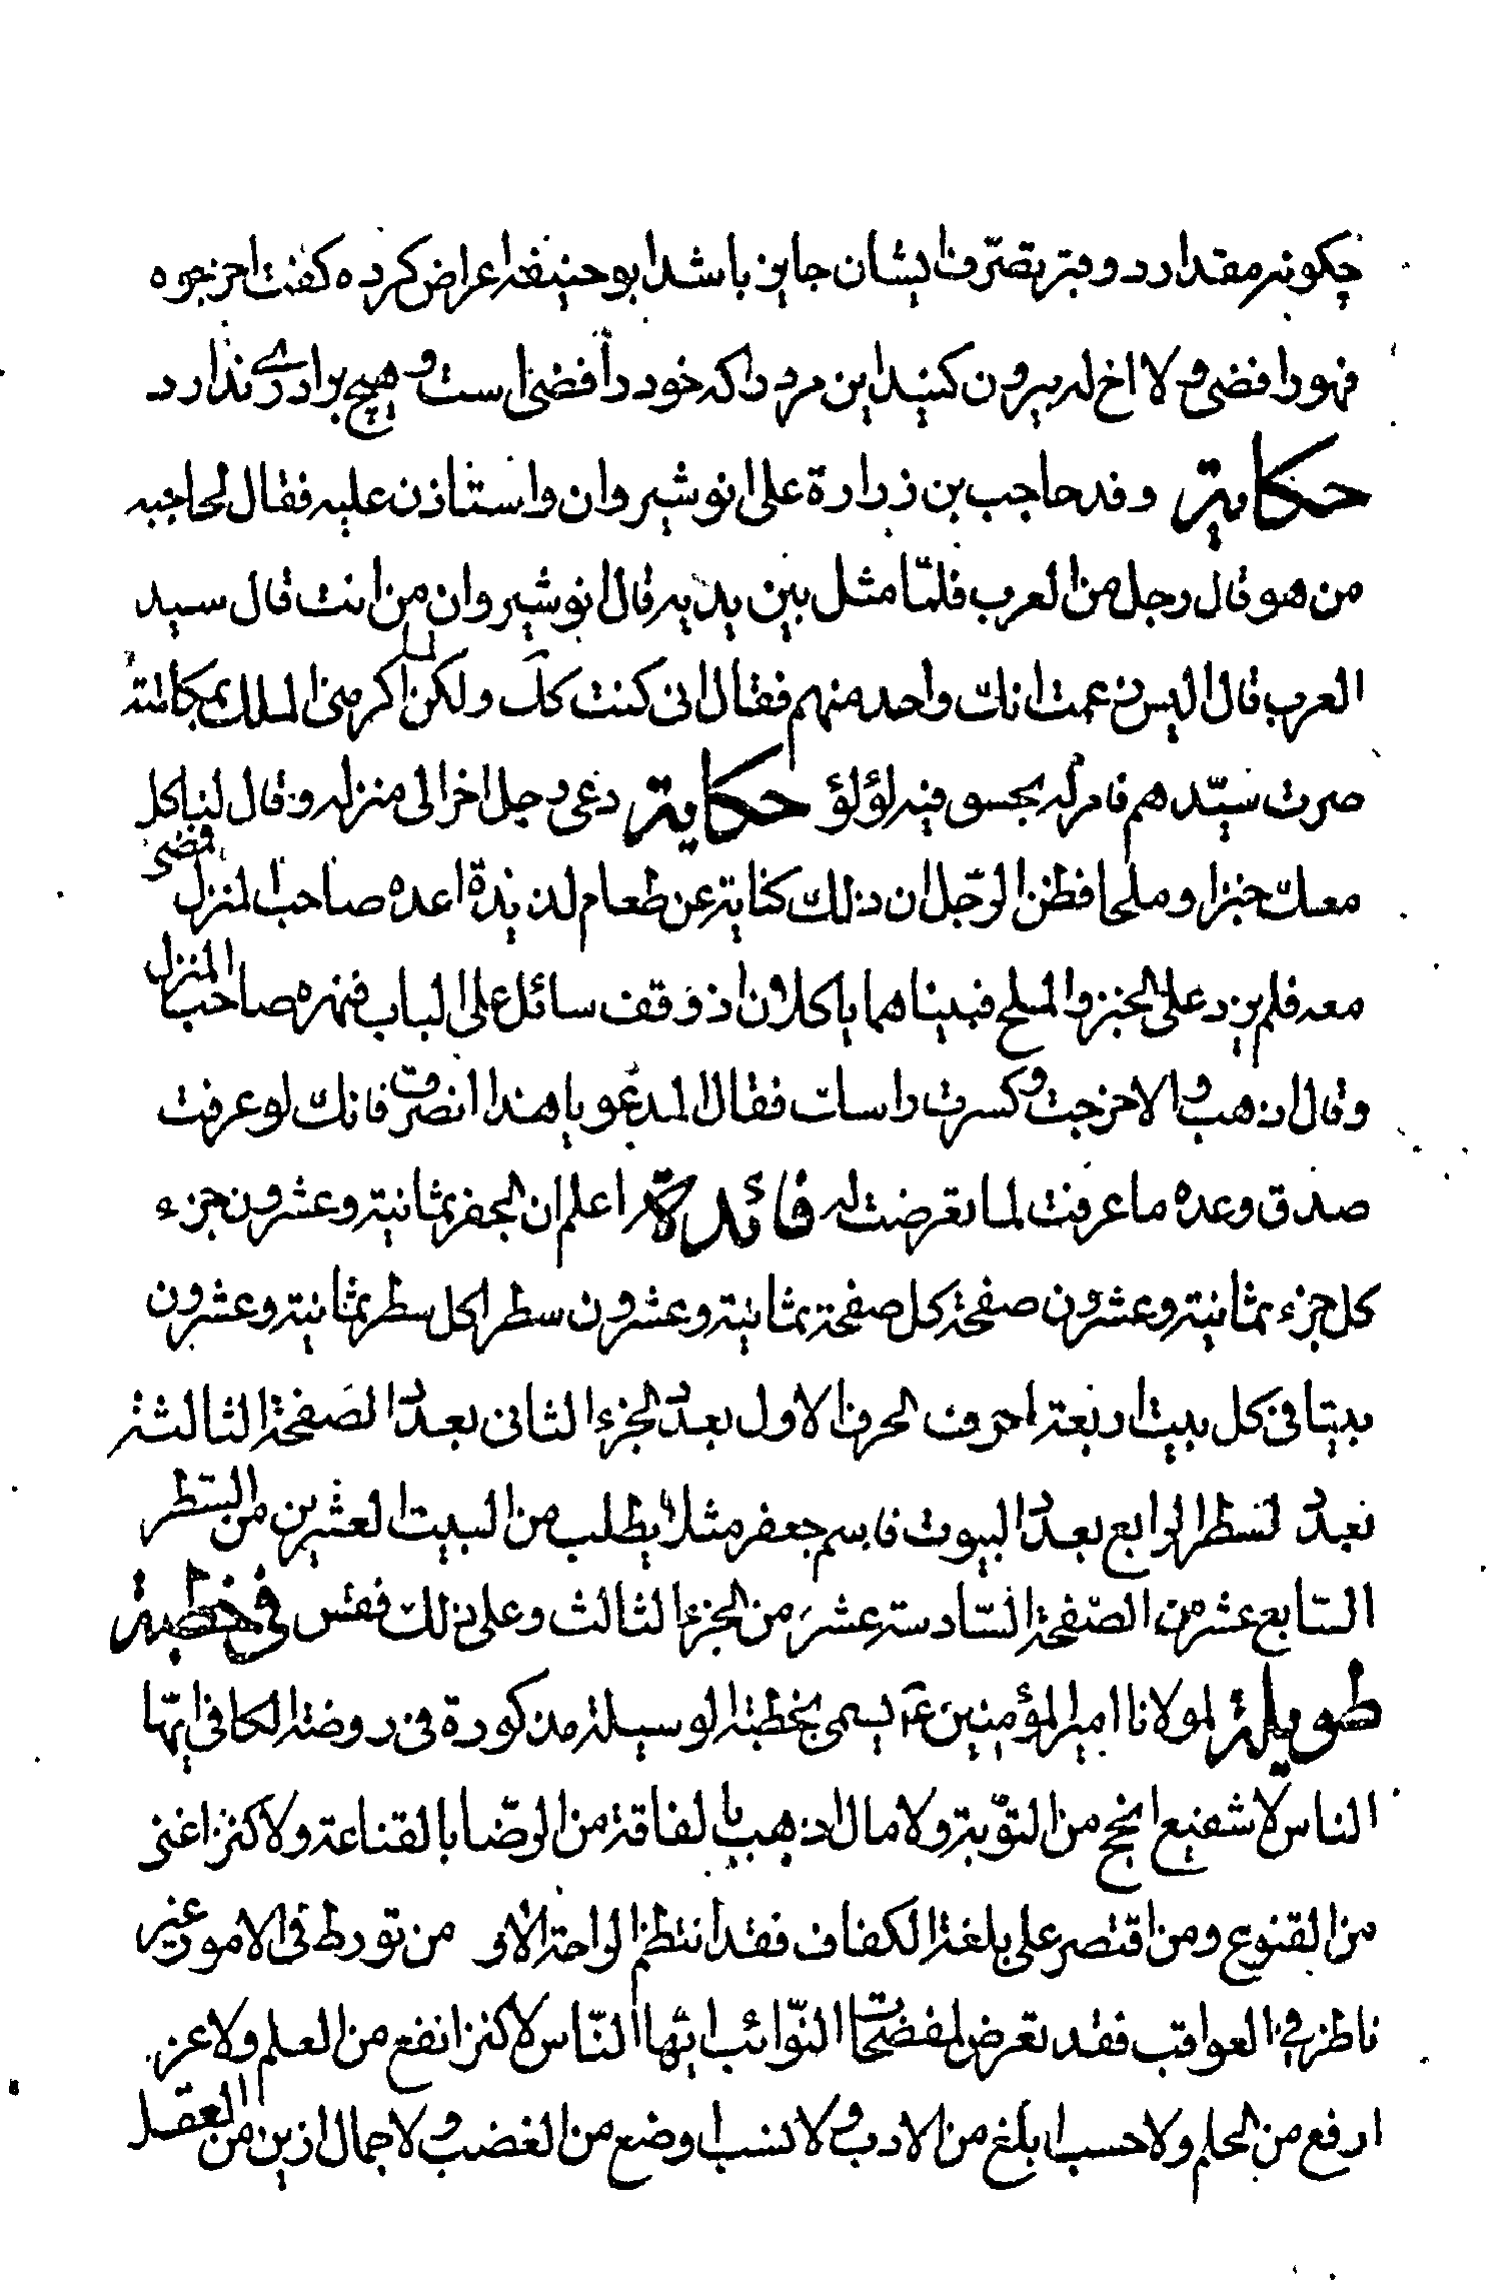 چکونه مقدار در دفتر تصرف ایشان جایز باشد ابو حنیفه اعراض کرده کفت اخرجوه
فهو رافضی و لا اخ له بیرون کنید این مرد را که خود رافضی است و هیچ برادری ندارد
حکایة وفد حاجب بن زرارة علی انوشیروان و استاذن علیه فقال لحاجبه
من هو قال رجل من العرب فلمّا مثل بین یدیه قال انوشیروان من انت قال سید
العرب قال الیس زعمت انك واحد منهم فقال انی کنت کك ولکن لما اکرمنی الملك بمکالمته
صرت سیّدهم فامر له بحسو فیه لؤلؤ حکایة دعی رجل اخر الی منزله و قال لناکل
معك خبزا و ملحا فظن الرّجل ان ذلك کنایة عن طعام لذیذة اعده صاحب المنزل فمضی
معه فلم یزد علی الخبز و الملح فبیناهما یاکلان اذ وقف سائل علی الباب فنهره صاحب المنزل
و قال اذهب و الا خرجت و کسرت راسك فقال المدعو یا هذا انصرف فانك لو عرفت
صدق وعده ما عرفت لما تعرضت له فائدة اعلم ان الجفر ثمانیة و عشرون جزء
کل جزء ثمانیة و عشرون صفحة کل صفحة ثمانیة و عشرون سطرا کل سطر ثمانیة و عشرون
بیتا فی کل بیت اربعة احرف الحرف الاول بعدد الجزء الثانی بعدد الصفحة الثالثة
بعدد السّطر الرابع بعدد البیوت فاسم جعفر مثلا یطلب من البیت العشرین من السّطر
السّابع عشر من الصّفحة السّادسة عشر من الجزء الثالث و علی ذلك فقس فی خطبة
طویلة لمولانا امیر المؤمنین ع یسمی بخطبة الوسیلة مذکورة فی روضة الکافی ایّها
الناس لا شفیع انجح من التّوبة و لا مال اذهب بالفاقة من الرّضا بالقناعة و لا کنز اغنی
من القنوع و من اقتصر علی بلغة الکفاف فقد انتظم الراحة الا و من تورط فی الامور غیر
ناظر فی العواقب فقد تعرض لمفضحات النّوائب ایّها النّاس لا کنز انفع من العلم و لا عز
ارفع من الحلم و لا حسب ابلغ من الادب و لا نسب اوضع من الغضب و لا جمال ازین من العقل